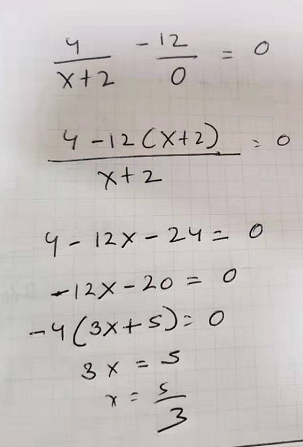 4/(x+2) -12/0 = 0
(4-12(x+2))/(x+2) = 0
4-12x-24 = 0
-12x-20 = 0
-4(3x+5) = 0
3x = 5
x = 5/3